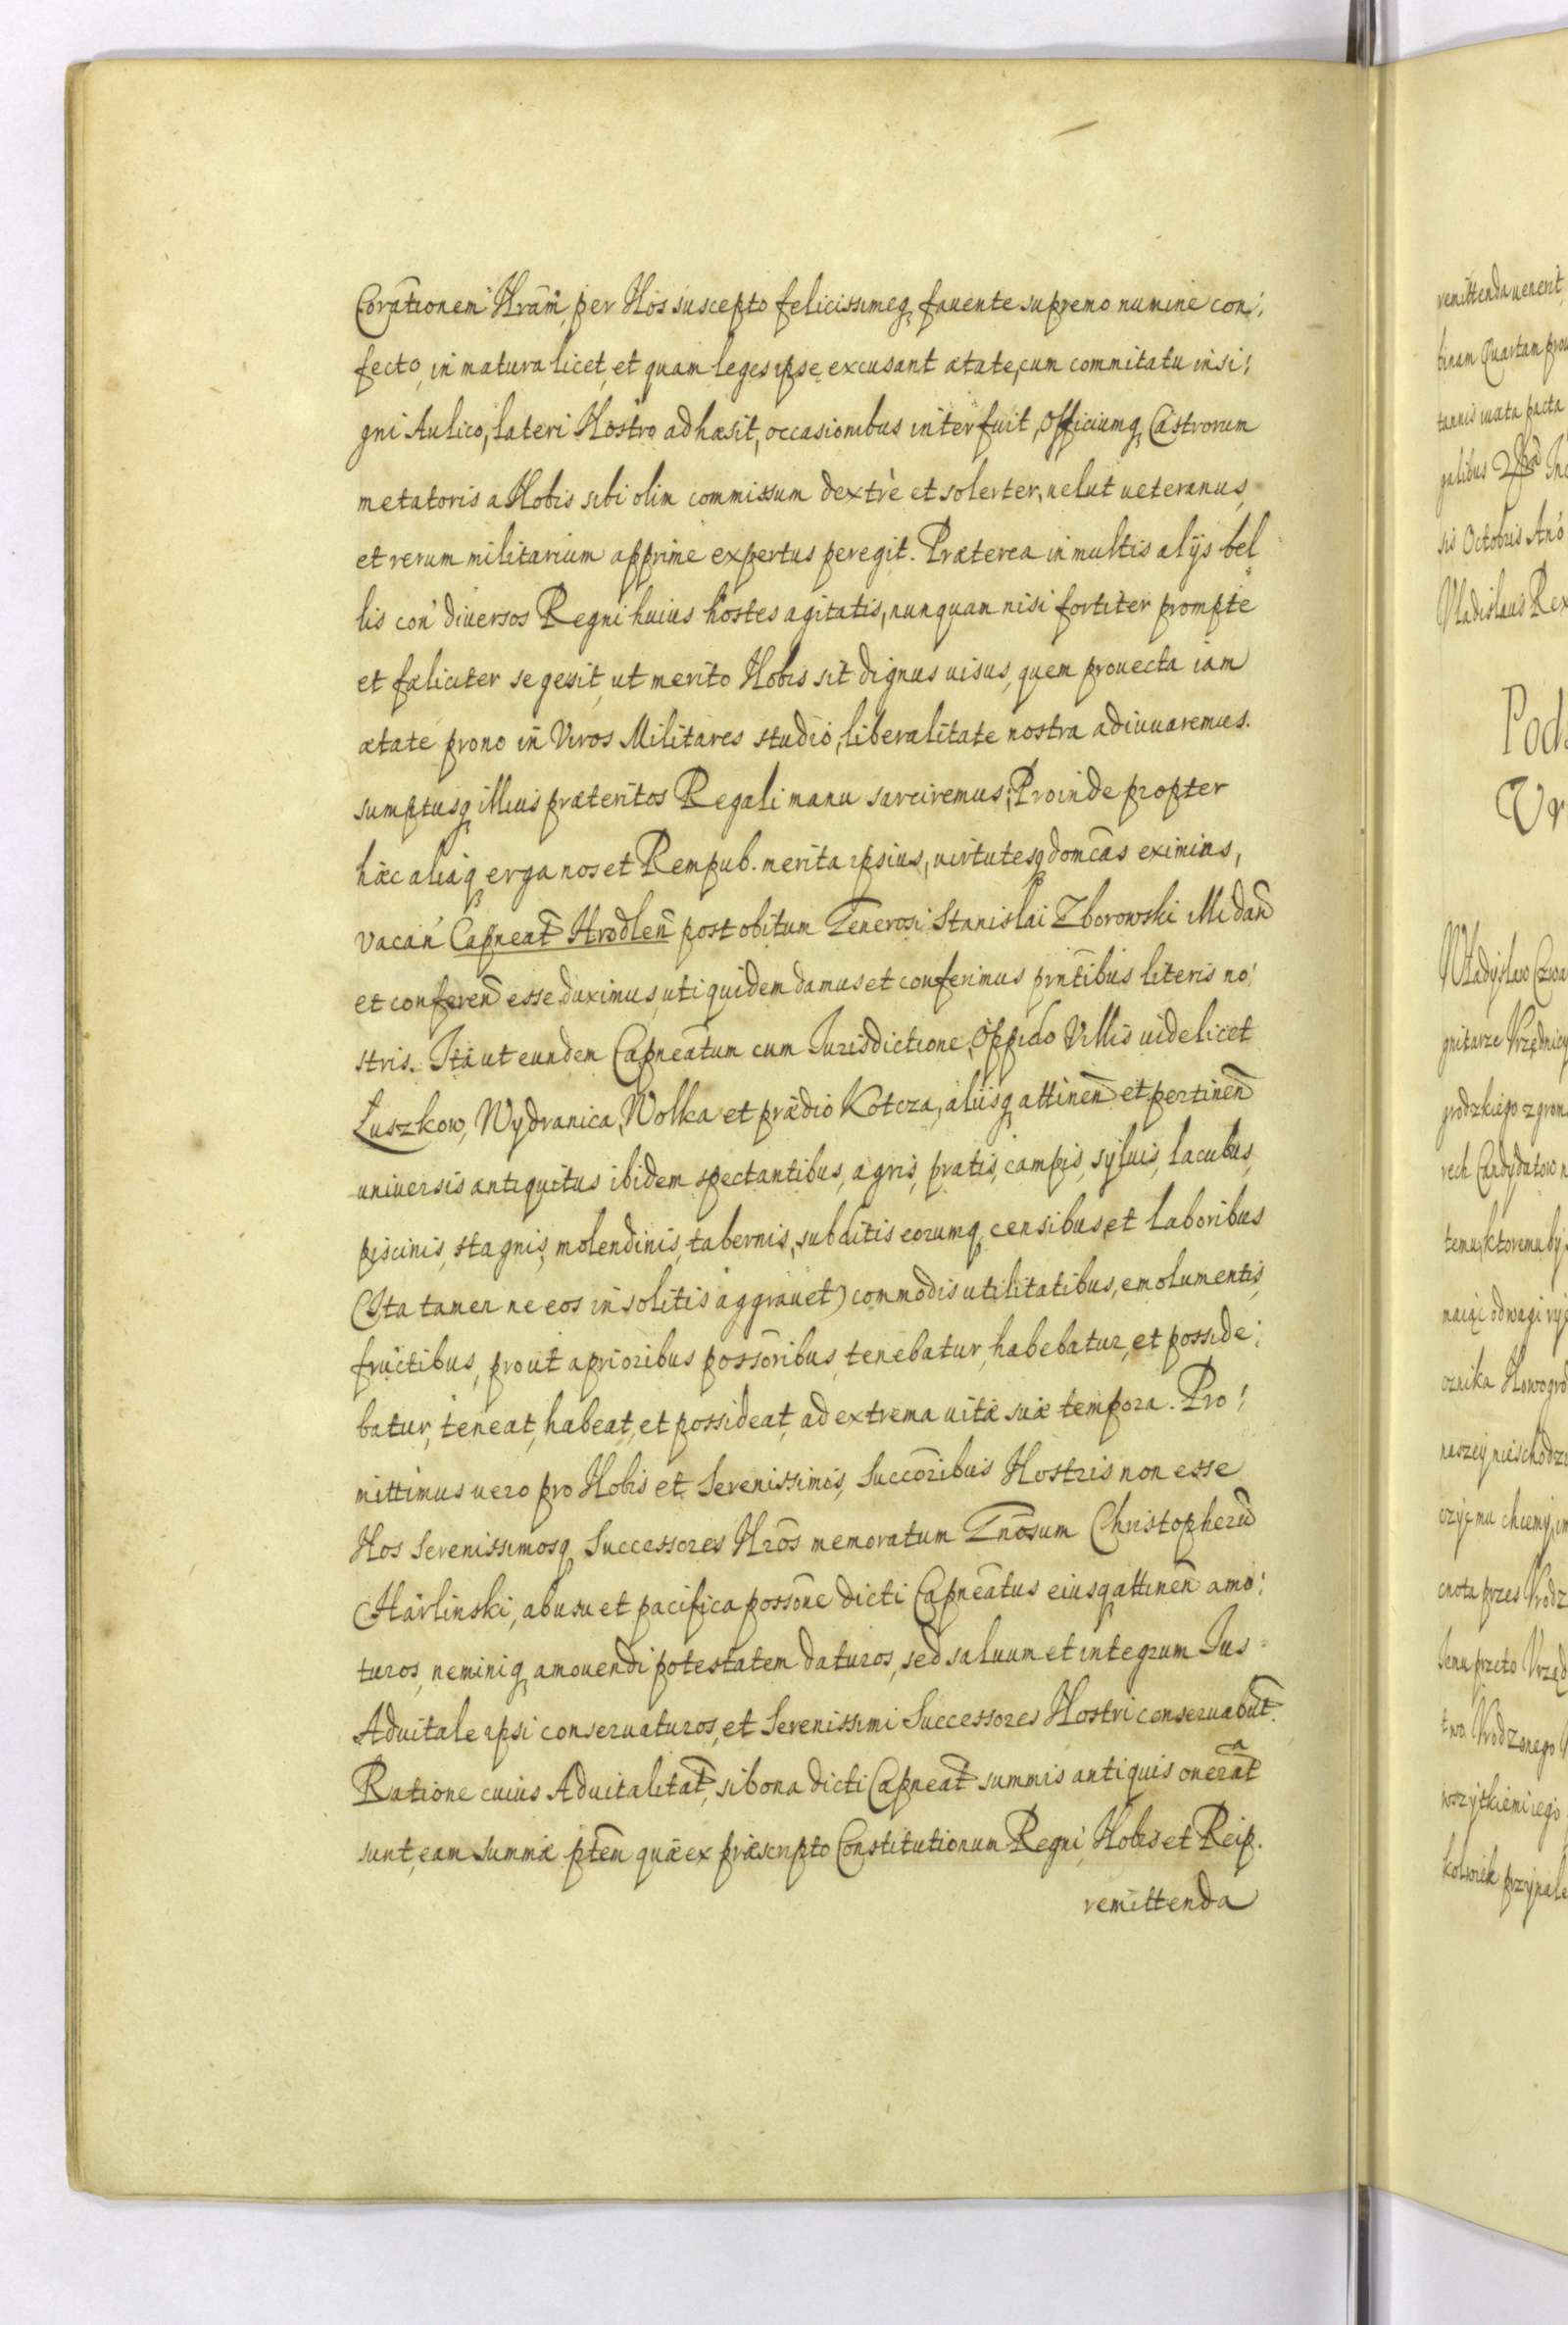 Corãtionem Nrãm, per Nos suscepto felicissimeq, fauente supremo numine con:
fecto, in matura licet, et quam leges ipse excusant ætate, cum commitatu insi:
gni Aulico, lateri Nostro adhæsit, occasionibus interfuit, Officiumq Castrorum
metatoris a Nobis sibi olim commissum dextrè et solerter, uelut ueteranus,
et rerum militarium apprime expertus peregit. Præterea in multis alijs bel
lis con diuersos Regni huius hostes agitatis, nunquam nisi fortiter prompte
et fæliciter se gesit, ut merito Nobis sit dignus uisus, quem prouecta iam
ætate prono in Viros Militares studio, liberalitate nostra adiuuaremus.
sumptusq illius præteritos Regali manu sarciremus; Proinde propter
hæc aliaq erga nos et Rempub. merita ipsius, uirtutesq domc̃as eximias,
vacan Capneat̃ Hrodleñ post obitum Generosi Stanislai Zborowski illi dañ
et conferen̄ esse duximus, uti quidem damus et conferimus prñtibus literis no:
stris. Ita ut eundem Capneãtum cum Iurisdictione, Oppido Villis uidelicet
Łuszkow, Wydranica, Wolka et prædio Kotcza, aliisq attineñ et pertineñ
uniuersis antiquitus ibidem spectantibus, agris, pratis, campis, syluis, lacubus,
piscinis, stagnis, molendinis, tabernis, subditis eorumq censibus, et laboribus
(Ita tamen ne eos insolitis aggrauet) commodis utilitatibus, emolumentis,
fructibus, prout a prioribus possõribus, tenebatur, habebatur, et posside:
batur, teneat, habeat, et possideat, ad extrema uitæ suæ tempora. Pro:
mittimus uero pro Nobis et Serenissimis, Succõribus Nostris non esse
Nos Serenissimosq Successores Nrõs memoratum Gnõsum Christopherũ
Harlinski, ab usu et pacifica possõne dicti Capneãtus eiusq attineñ amo:
turos, neminiq amouendi potestatem daturos, sed saluum et integrum Ius
Aduitale ipsi conseruaturos, et Serenissimi Successores Nostri conseruabũt.
Ratione cuius Aduitalitat̃, si bona dicti Capneat̃ summis antiquis onerat̃a
sunt, eam summæ ptẽm quæ ex præscripto Constitutionum Regni, Nobis et Reip.
remittenda
remittenda uenerit
tannis iuxta pacta
sis Octobris Anõ
Vladislaus Rex
temu, ktoremu by
cnota przes